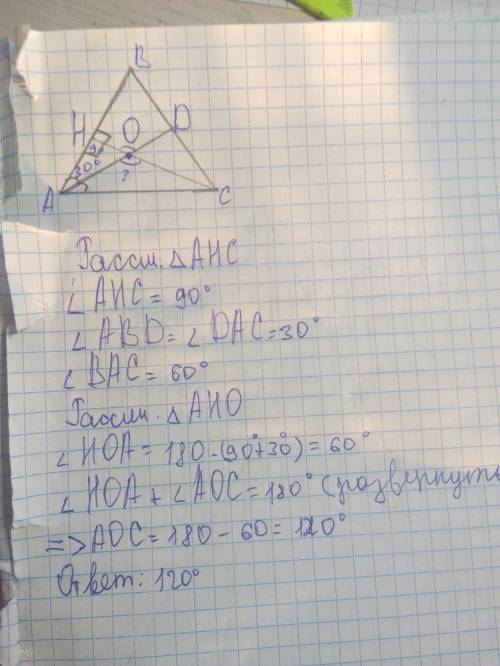 B
H O D
30°
?
A C
Рассм. △ AHC
∠ AHC = 90°
∠ ABD = ∠ DAC = 30°
∠ BAC = 60°
Рассм. △ AHO
∠ HOA = 180 - (90° + 30°) = 60°
∠ HOA + ∠ AOC = 180° (развернуты
=> AOC = 180 - 60 = 120°
Ответ: 120°